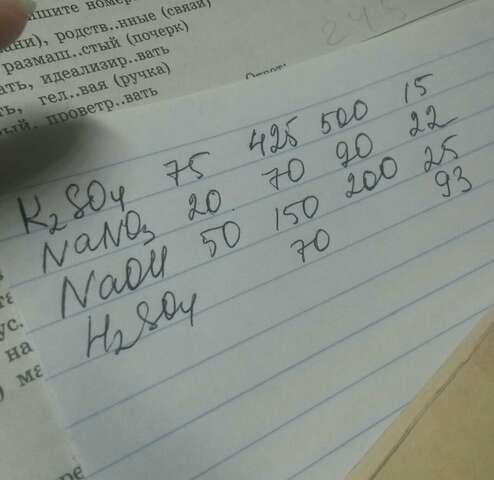 шите номер
ани), родств..нные (связи)
размаш..стый (почерк)
ать, идеализир..вать
ть, гел..вая (ручка)
ый, проветр..вать
Ответ:
245
K₂SO₄ 75 425 500 15
NaNO₃ 20 70 90 22
NaOH 50 150 200 25
H₂SO₄ 70 93
ус.
на
ма